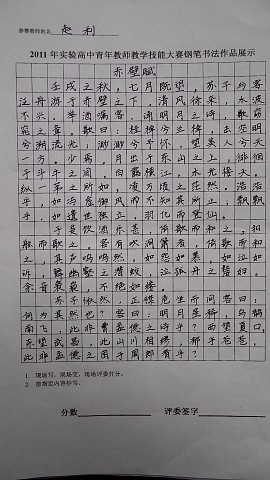 参赛教师姓名 赵利
2011年实验高中青年教师教学技能大赛钢笔书法作品展示
赤壁赋
壬戌之秋，七月既望，苏子与客
泛舟游于赤壁之下。清风徐来，水波
不兴。举酒属客，诵明月之诗，歌窈
窕之章。歌曰：桂棹兮兰桨，击空明
兮溯流光；渺渺兮予怀，望美人兮天
一方。少焉，月出于东山之上，徘徊
于斗牛之间。白露横江，水光接天。
纵一苇之所如，凌万顷之茫然。浩浩
乎，如冯虚御风而不知其所止；飘飘
乎，如遗世独立，羽化而登仙。
于是饮酒乐甚，
舷而歌之。客有吹洞箫者，倚歌而和
之，其声呜呜然，如怨如慕，如泣如
诉，舞幽壑之潜蛟，泣孤舟之嫠妇。
余音袅袅，不绝如缕。
苏子愀然，正襟危坐而问客曰：
何为其然也？客曰：明月星稀，乌鹊
南飞，此非曹孟德之诗乎？西望夏口，
东望武昌，此山川相缪，郁乎苍苍，
此非孟德之困于周郎者乎？
1. 现场写，现场交，现场评委打分。
2. 按指定内容抄写。
分数 评委签字